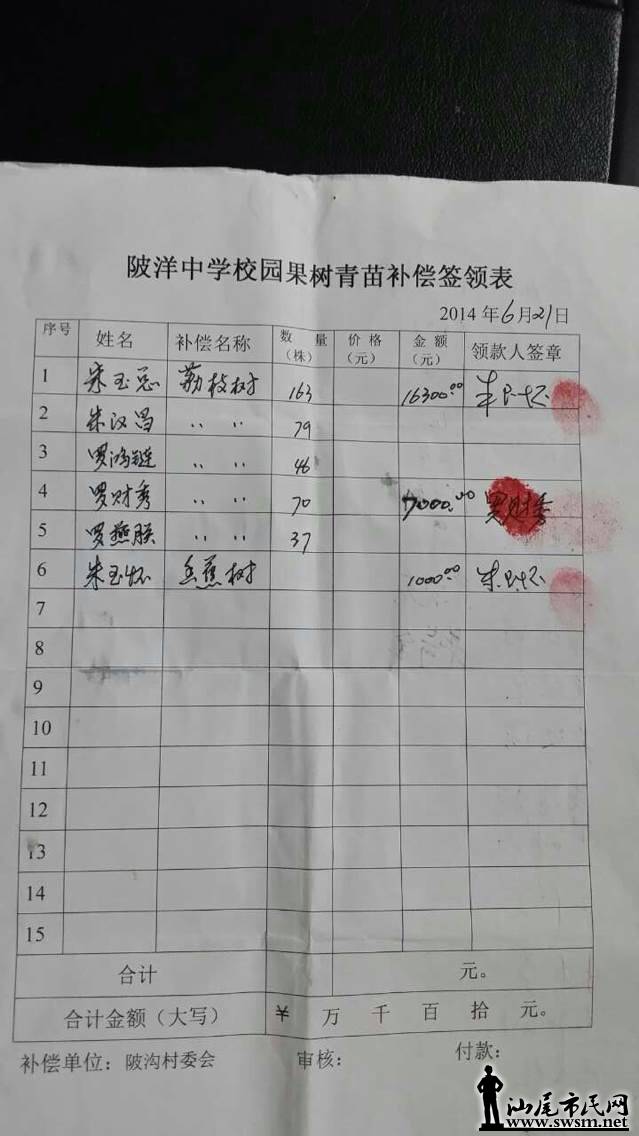 陂洋中学校园果树青苗补偿签领表
2014 年 6 月 21 日
序号 姓名 补偿名称 数量（株） 价格（元） 金额（元） 领款人签章
1 朱玉怀 荔枝树 163 16300.00
2 朱汉昌 〃 〃 79
3 罗鸿链 〃 〃 46
4 罗财秀 〃 〃 70 7000.00 罗财秀
5 罗 〃 〃 37
6 朱玉怀 香蕉树 1000.00 朱玉怀
7
8
9
10
11
12
13
14
15
合计 元。
合计金额（大写） ¥ 万 千 百 拾 元。
补偿单位：陂沟村委会 审核： 付款：
汕尾市民网
www.swsm.net